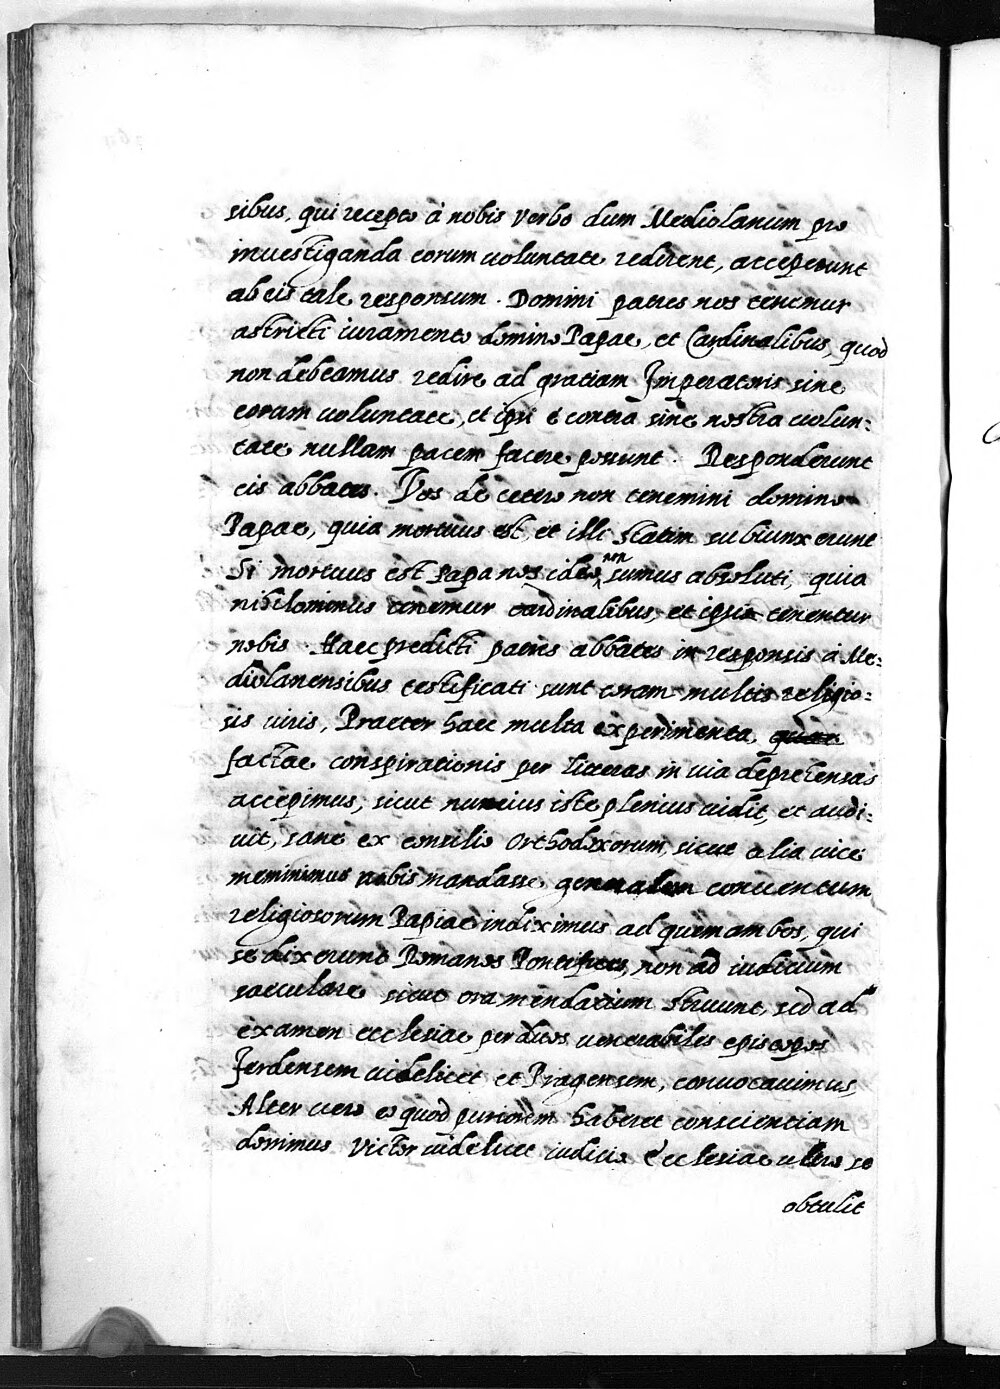 sibus, qui recepto à nobis verbo dum Mediolanum pro
investiganda eorum uoluntate redirent, acceperunt
ab eis tale responsum. Domini patres nos tenemur
astricti iuramento domino Papae, et Cardinalibus, quod
non debeamus redire ad gratiam Imperatoris sine
eorum uoluntate, et ipsi e contra sine nostra uolun-
tate nullam pacem facere possunt. Responderunt
eis abbates. Vos de cetero non tenemini domino
Papae, quia mortuus est, et illi statim subiunxerunt
Si mortuus est Papa nos ideo non sumus absoluti, quia
nihilominus tenemur cardinalibus, et ipsi tenentur
nobis. Haec predicti patres abbates in responsis à Me-
diolanensibus testificati sunt coram multis religio-
sis viris, Praeter haec multa experimenta, quae
factae conspirationis per literas in via deprehensas
accepimus, sicut nuncius iste plenius uidit, et audi-
uit, sane ex consilio Orthodoxorum, sicut alia uice
meminimus nobis mandasse, generalem conuentum
religiosorum Papiae indiximus ad quem ambos, qui
se dixerunt Romanos Pontifices, non ad iudicium
saeculare sicut oramendacium struunt, sed ad
examen ecclesiae per duos uenerabiles episcopos
ferdensem uidelicet et Pragensem, conuocauimus,
Alter uero eo quod puriorem haberet conscientiam
dominus Victor uidelicet iudicio Ecclesiae ultro se
obtulit